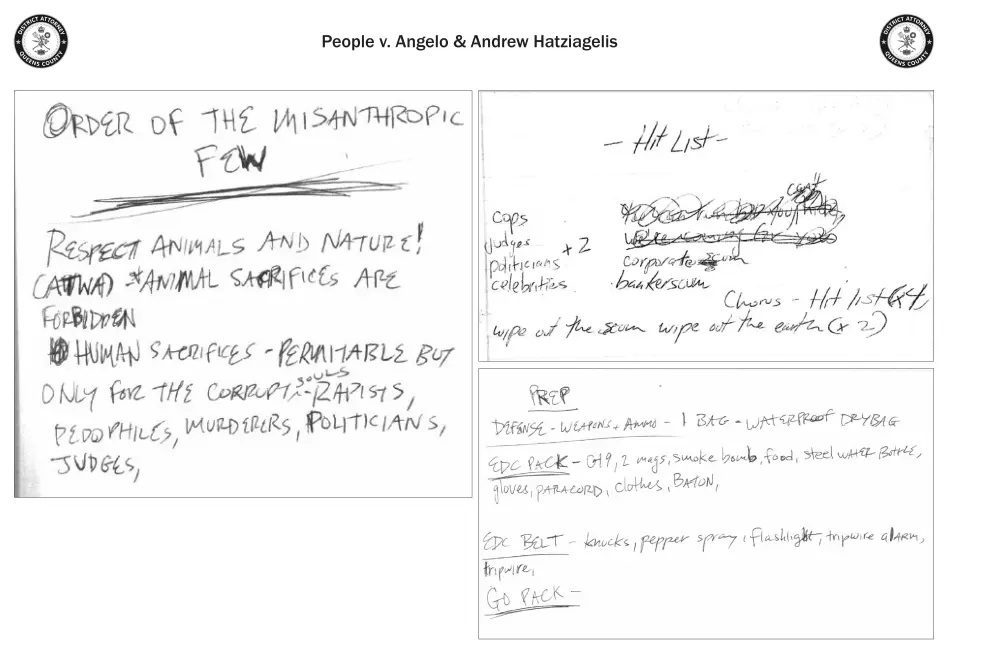 DISTRICT ATTORNEY
QUEENS COUNTY
People v. Angelo & Andrew Hatziagelis
DISTRICT ATTORNEY
QUEENS COUNTY
ORDER OF THE MISANTHROPIC
FEW
RESPECT ANIMALS AND NATURE!
(ATWA) *ANIMAL SACRIFICES ARE
FORBIDDEN
HUMAN SACRIFICES - PERMITABLE BUT
ONLY FOR THE CORRUPT SOULS - RAPISTS,
PEDOPHILES, MURDERERS, POLITICIANS,
JUDGES,
- Hit List -
can't
cops
judges
politicians
celebrities
+2
corporate scum
bankerscum
Chorus - Hit list (x4)
wipe out the scum wipe out the earth (x 2)
PREP
DEFENSE - WEAPONS + AMMO - 1 BAG - WATERPROOF DRYBAG
EDC PACK - G19, 2 mags, smoke bomb, food, steel WATER BOTTLE,
gloves, PARACORD, clothes, BATON,
EDC BELT - knucks, pepper spray, flashlight, tripwire alARM,
tripwire,
GO PACK -